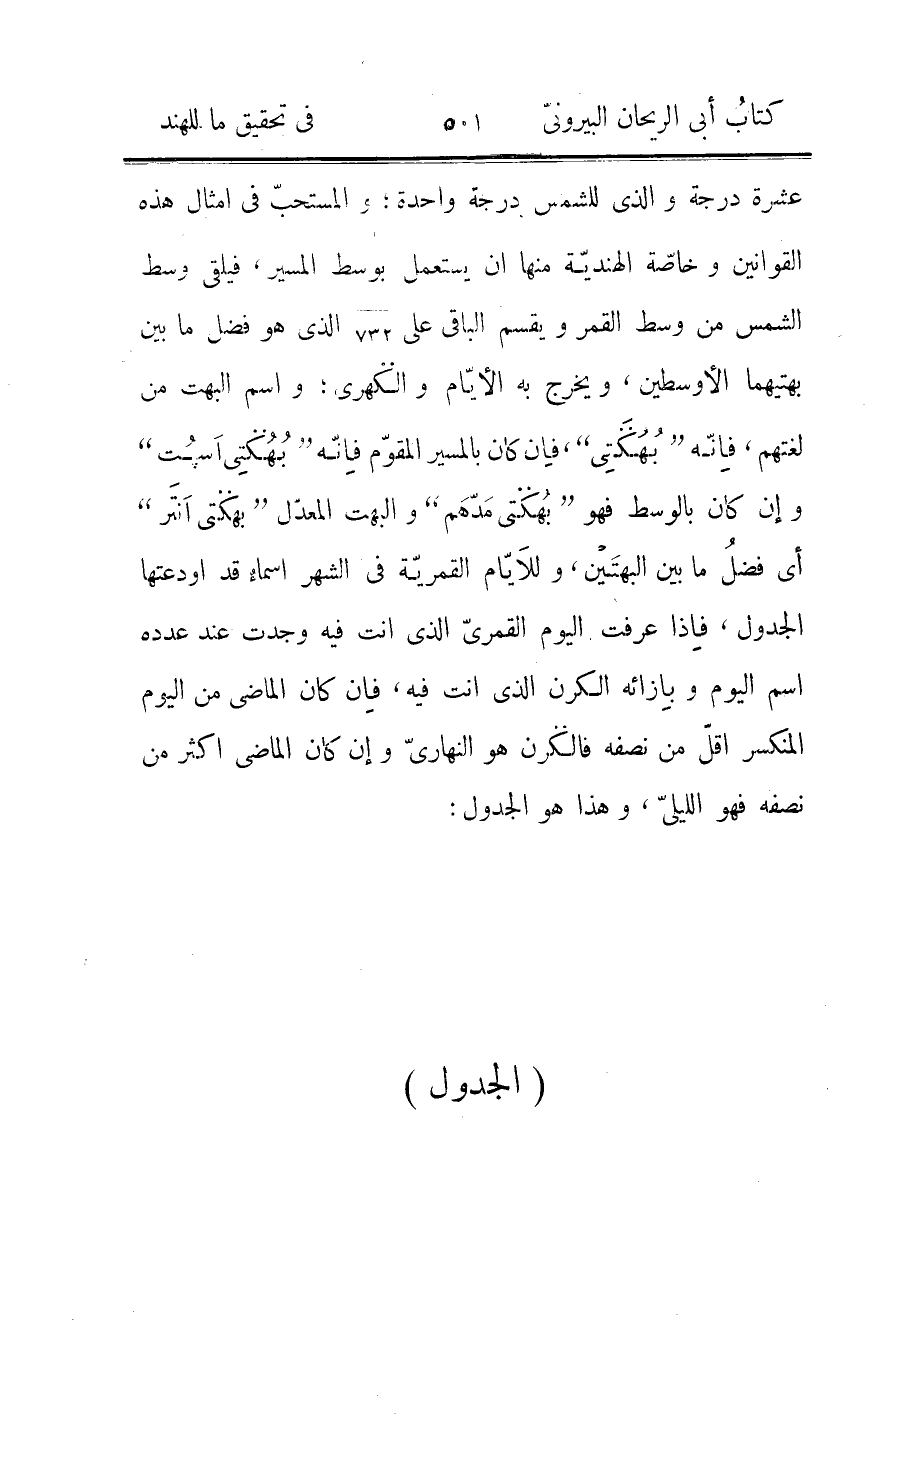 كتابُ أبى الريحان البيرونىّ ٥٠١ فى تحقيق ما للهند
عشرة درجة و الذى للشمس درجة واحدة؛ و المستحبّ فى امثال هذه
القوانين و خاصّة الهنديّة منها ان يستعمل بوسط المسير، فيلقى وسط
الشمس من وسط القمر و يقسم الباقى على ٧٣٢ الذى هو فضل ما بين
بهتيهما الأوسطين، و يخرج به الأيّام و الكهرى؛ و اسم البهت من
لغتهم، فإنّه ” بُهُكَتِى “، فإن كان بالمسير المقوّم فإنّه ” بُهُكتِى آسپُت “
و إن كان بالوسط فهو ” بُهكتى مَدّهَم “ و البهت المعدّل ” بهكتى اَنتَر “
أى فضلُ ما بين البهتَين، و للأيّام القمريّة فى الشهر اسماء قد اودعتها
الجدول، فإذا عرفت اليوم القمرىّ الذى انت فيه وجدت عند عدده
اسم اليوم و بإزائه الكرن الذى انت فيه، فإن كان الماضى من اليوم
المنكسر اقلّ من نصفه فالكرن هو النهارىّ و إن كان الماضى اكثر من
نصفه فهو الليلىّ، و هذا هو الجدول:
( الجدول )